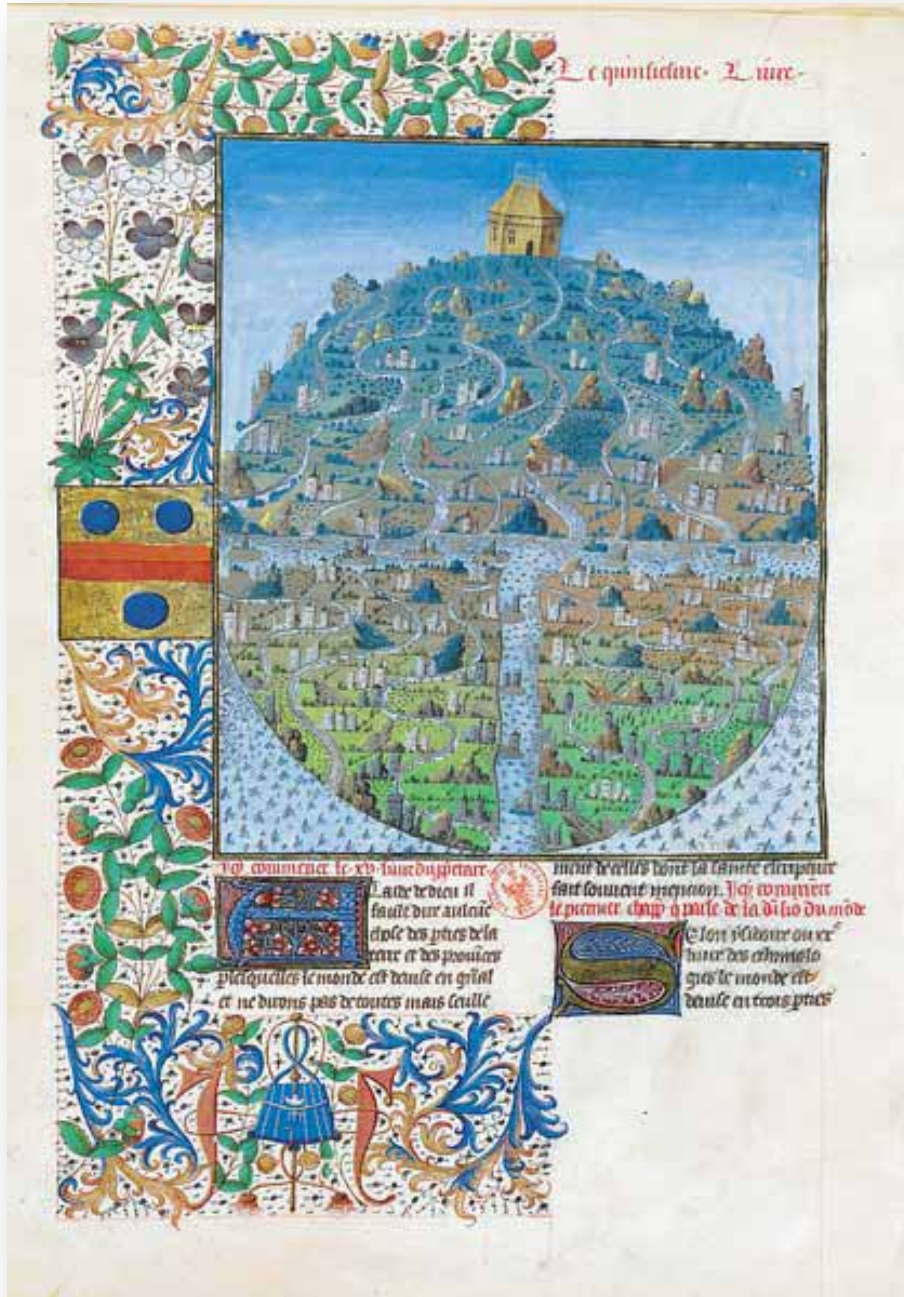 Le quinsiesme. Livre.
Icy commence le .xv. livre du p̄etaire
A l aide de dieu il
fault dire aulcūe
chose des pties de la
terre et des prouīces
p lesquelles le monde est deuise en gn̄al
et ne dirons pas de toutes mais seulle
ment de celles dont la saincte escripture
fait souuent mencion. Icy commence
le premier chapp̄ q̄ parle de la diuisiō du mōde
Selon ysidore ou xv
liure des ethimolo
gies le monde est
deuise en trois pties